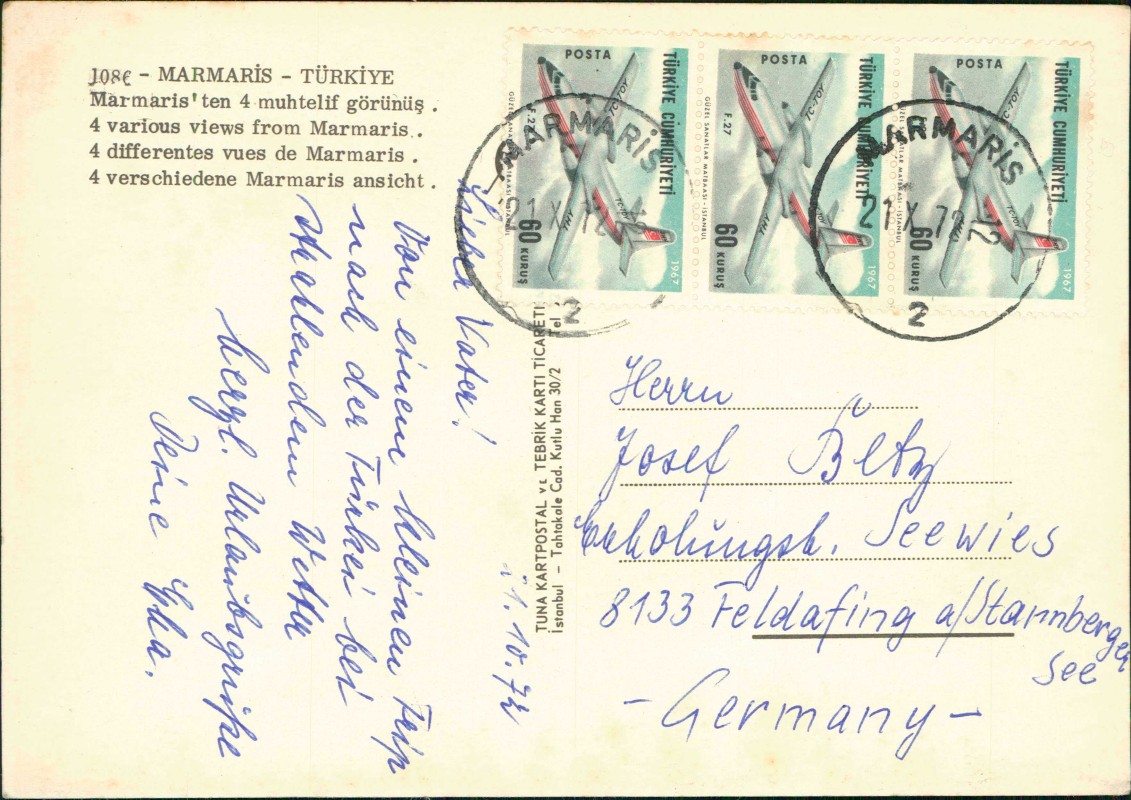 108€ - MARMARİS - TÜRKİYE
Marmaris'ten 4 muhtelif görünüş .
4 various views from Marmaris .
4 differentes vues de Marmaris .
4 verschiedene Marmaris ansicht .
POSTA
TÜRKİYE CUMHURİYETİ
TC-TOY
F.27
GÜZEL SANATLAR MATBAASI-İSTANBUL
THY
TC-TOY
60 KURUŞ
1967
POSTA
TÜRKİYE CUMHURİYETİ
TC-TOY
F.27
GÜZEL SANATLAR MATBAASI-İSTANBUL
THY
60 KURUŞ
1967
POSTA
TÜRKİYE CUMHURİYETİ
TC-TOY
GÜZEL SANATLAR MATBAASI-İSTANBUL
THY
TC-TOY
60 KURUŞ
1967
MARMARİS
21 X 72
2
MARMARİS
21 X 72 12
2
TUNA KARTPOSTAL ve TEBRİK KARTI TİCARETİ
İstanbul - Tahtakale Cad. Kutlu Han 30/2 Tel
1.10.72
Lieber Vater!
Von einem kleinen Trip
nach der Türkei bei
strahlendem Wetter
herzl. Urlaubsgrüße
Deine
Herrn
Josef Betz
Erholungsh. Seewies
8133 Feldafing a/Starnberger
See
- Germany -